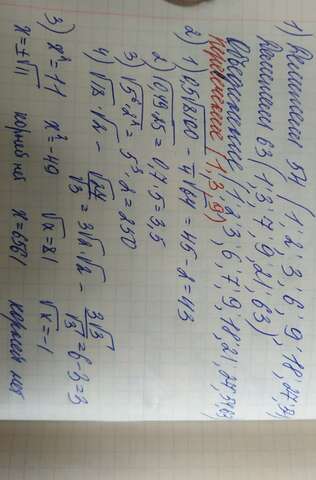 1) Делители 54 (1, 2, 3, 6, 9, 18, 27, 54)
Делители 63 (1, 3, 7, 9, 21, 63)
Объединение (1, 2, 3, 6, 7, 9, 18, 21, 27, 54, 63)
пересечение (1, 3, 9)
2) 1) 0,5√ - 4√64 = 45 - 2 = 43
2) √0,49·25 = 0,7·5 = 3,5
3) = 5³·2 = 250
4) √18·√2 - √27/√3 = 3√2·√2 - 3√3/√3 = 6-3=3
3) x² = 11 x² = -49 √x = 81 √x = -1
x = ±√11 корней нет x = 6561 корней нет